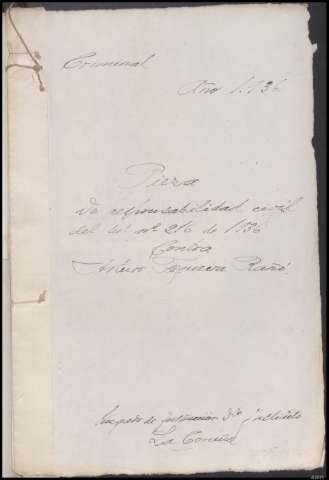 Criminal
Año 1.936
Pieza
de responsabilidad civil
del nº 216 de 1936
Contra
Arturo Noguerol
Juzgado de Instrucción
La Coruña